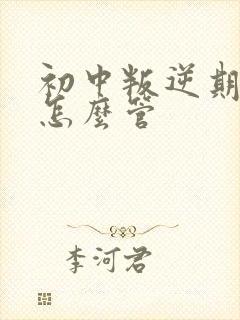 初中叛逆期
怎麼管
李河君